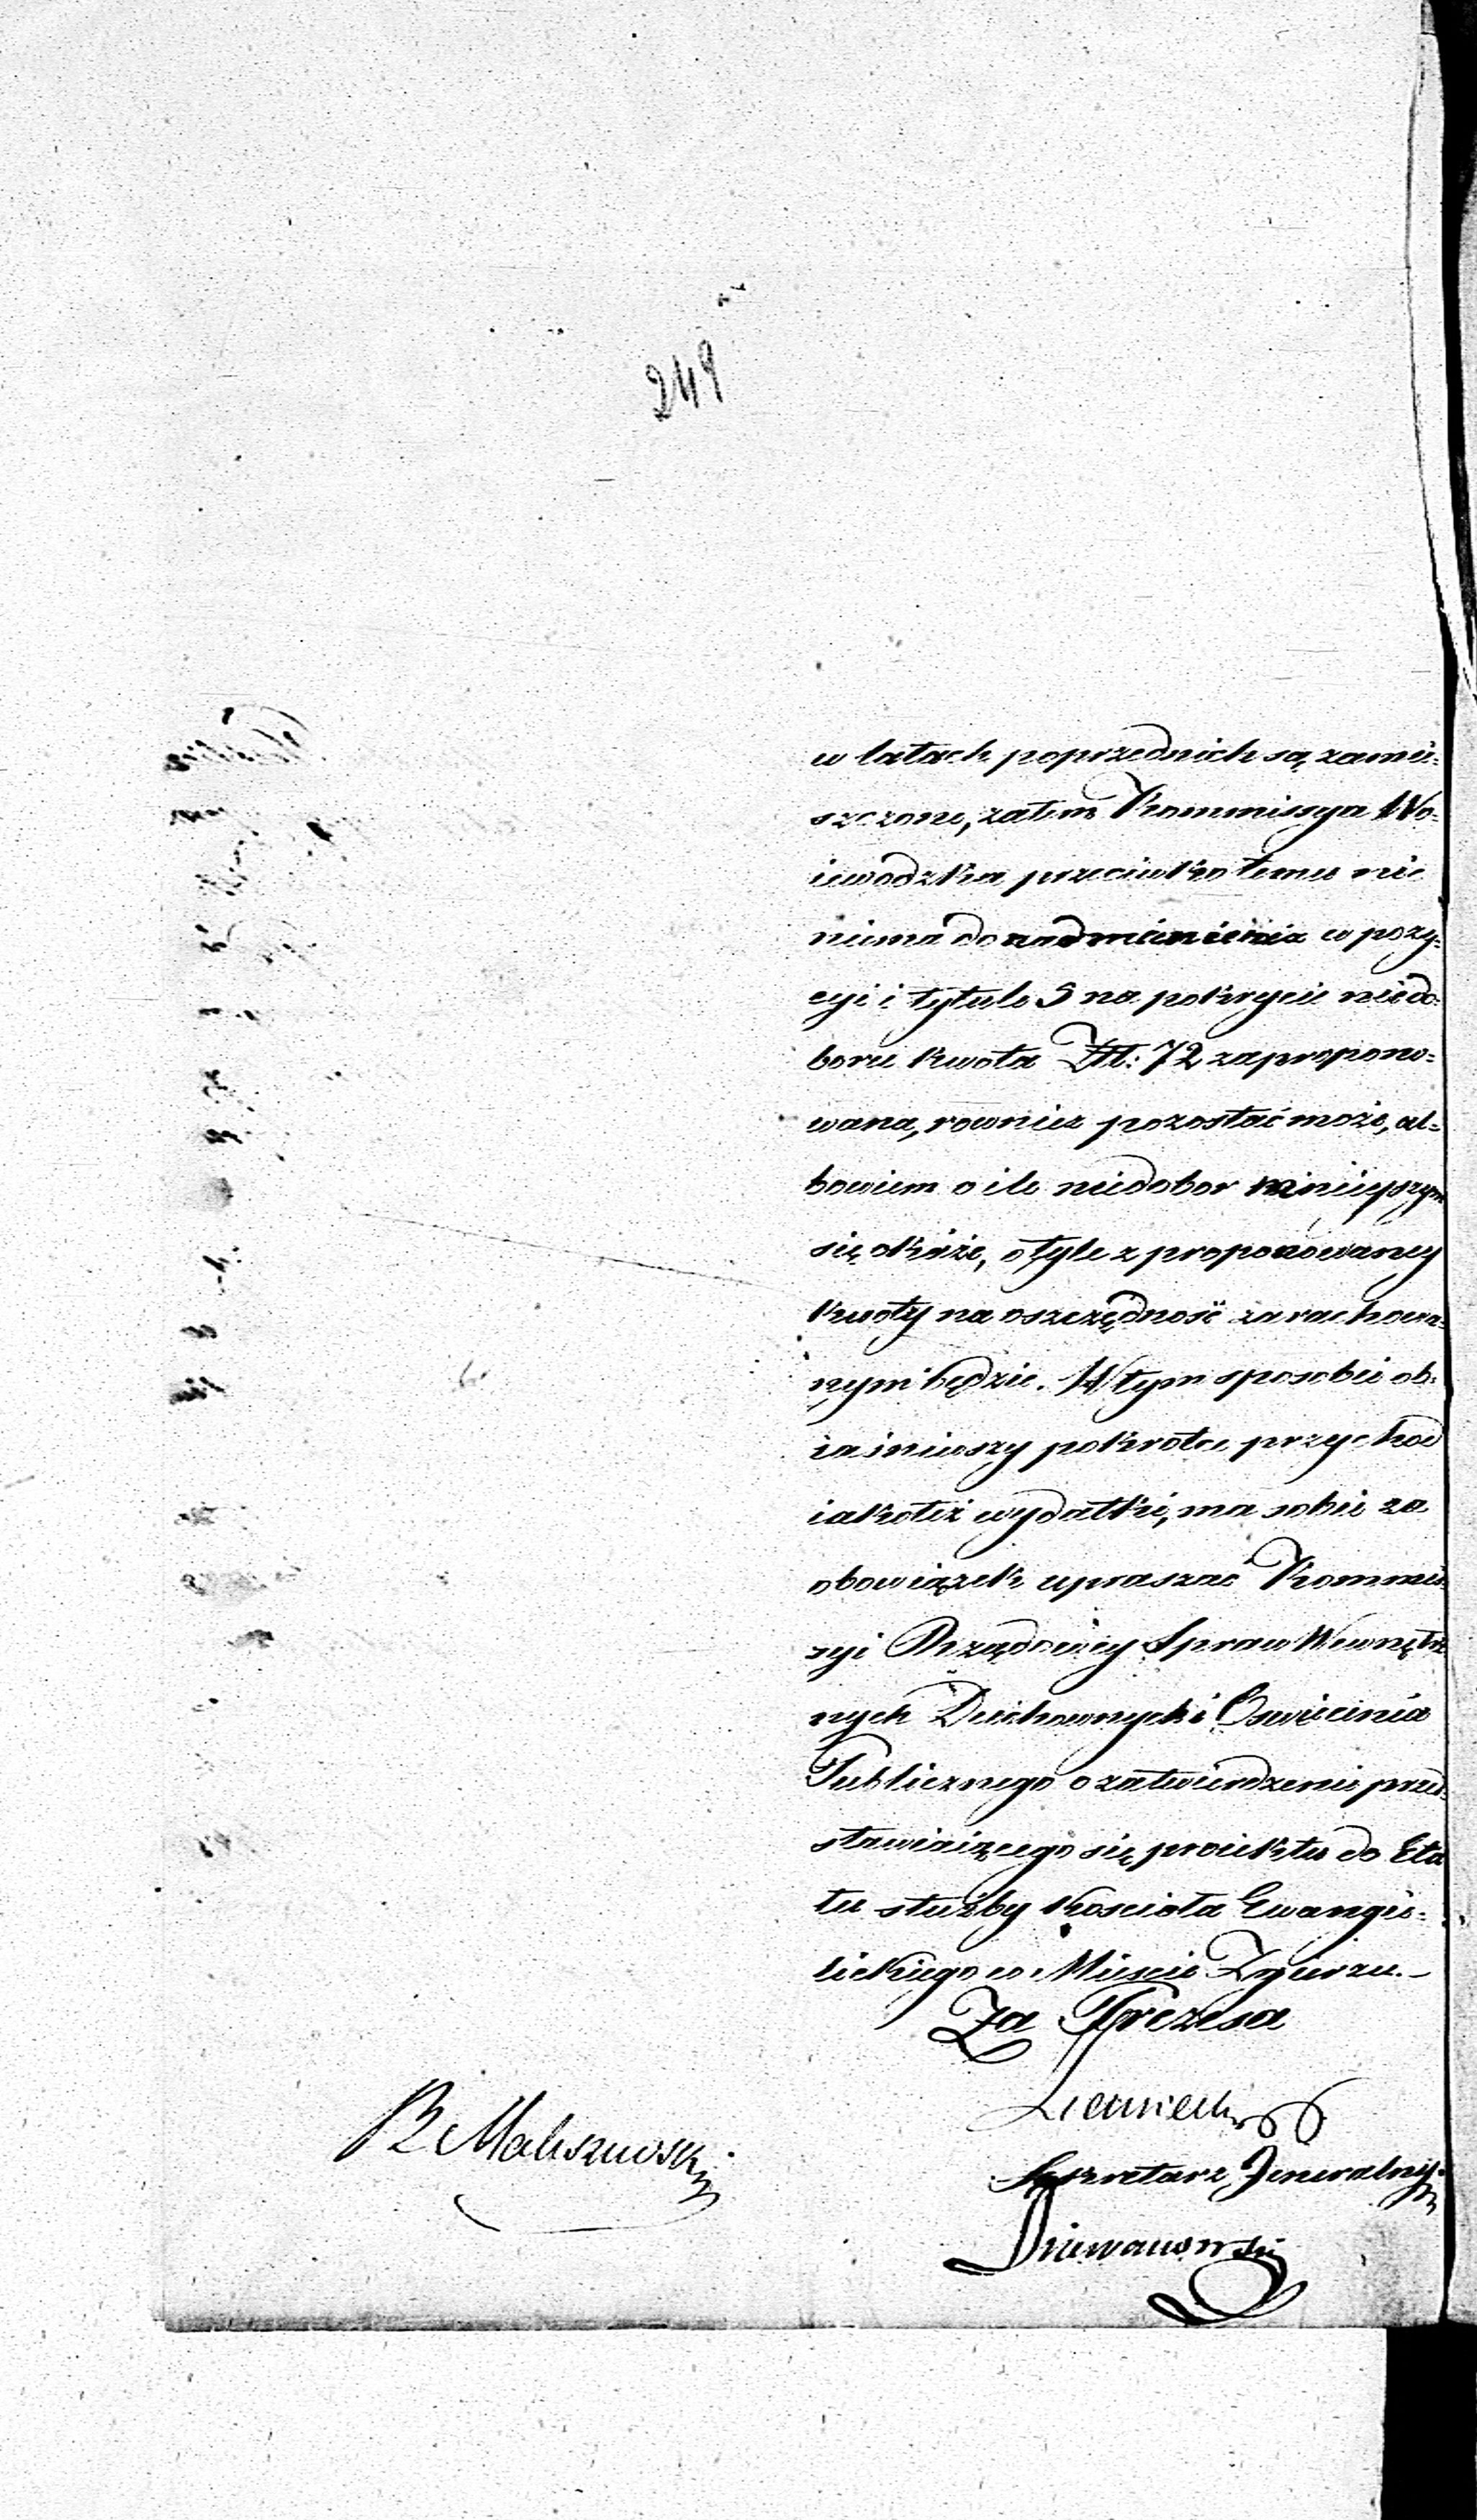 249
w latach poprzednich są zamie-
szczone, zatem Kommissya Wo-
iewodzka przeciwko temu nic
niema do nadmienienia w pozy-
cyi i tytule 5 na pokrycie niedo-
boru kwota Ztt: 72 zapropono-
wana, rownież pozostać może, al-
bowiem o ile niedobor mnieyszym
się okaże, o tyle z proponowaney
kwoty na oszczędność zarachowa-
nym będzie. W tym sposobie ob-
iaśniwszy pokrotce przychod
iakoteż wydatki, ma sobie za
obowiązek upraszać Kommis-
syi Rządowey Spraw Wewnętrz
nych Duchownych i Oswiecenia
Publicznego o zatwierdzenie przed-
stawiaiącego się proiektu do Eta
tu służby Koscioła Ewangie-
lickiego w Miescie Zgierzu.-
Za Prezesa
Sekretarz Jeneralny
R Maliszewski